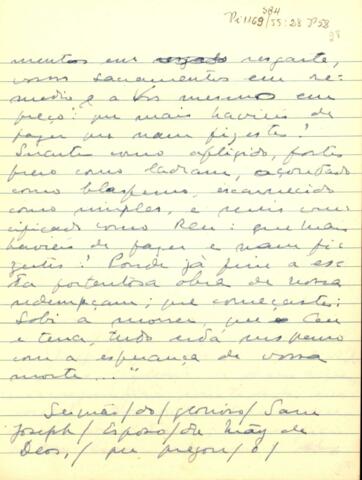 Pi 1169/SB4/55:28 P58
28
mentos em resgate,
vossos sacramentos em re-
medio e a Vos mesmo em
preço: que mais havieis de
fazer que nam fizestes!
Suaste como afligido, fostes
prezo como ladram, açoutado
como blasfemo, escarnecido
como simples, e mais cru-
cificado como Reu: que mais
havieis de fazer e nam fi-
zestes! Ponde já fim a es-
ta portentosa obra de vossa
redempçam; que começastes:
Sobi a morrer que o Ceu
e terra, tudo está suspenso
com a esperança de vossa
morte..."
Sermão/do/glorioso/Sam
Joseph/Esposo/da Mãy de
Deos,/que pregou/o/